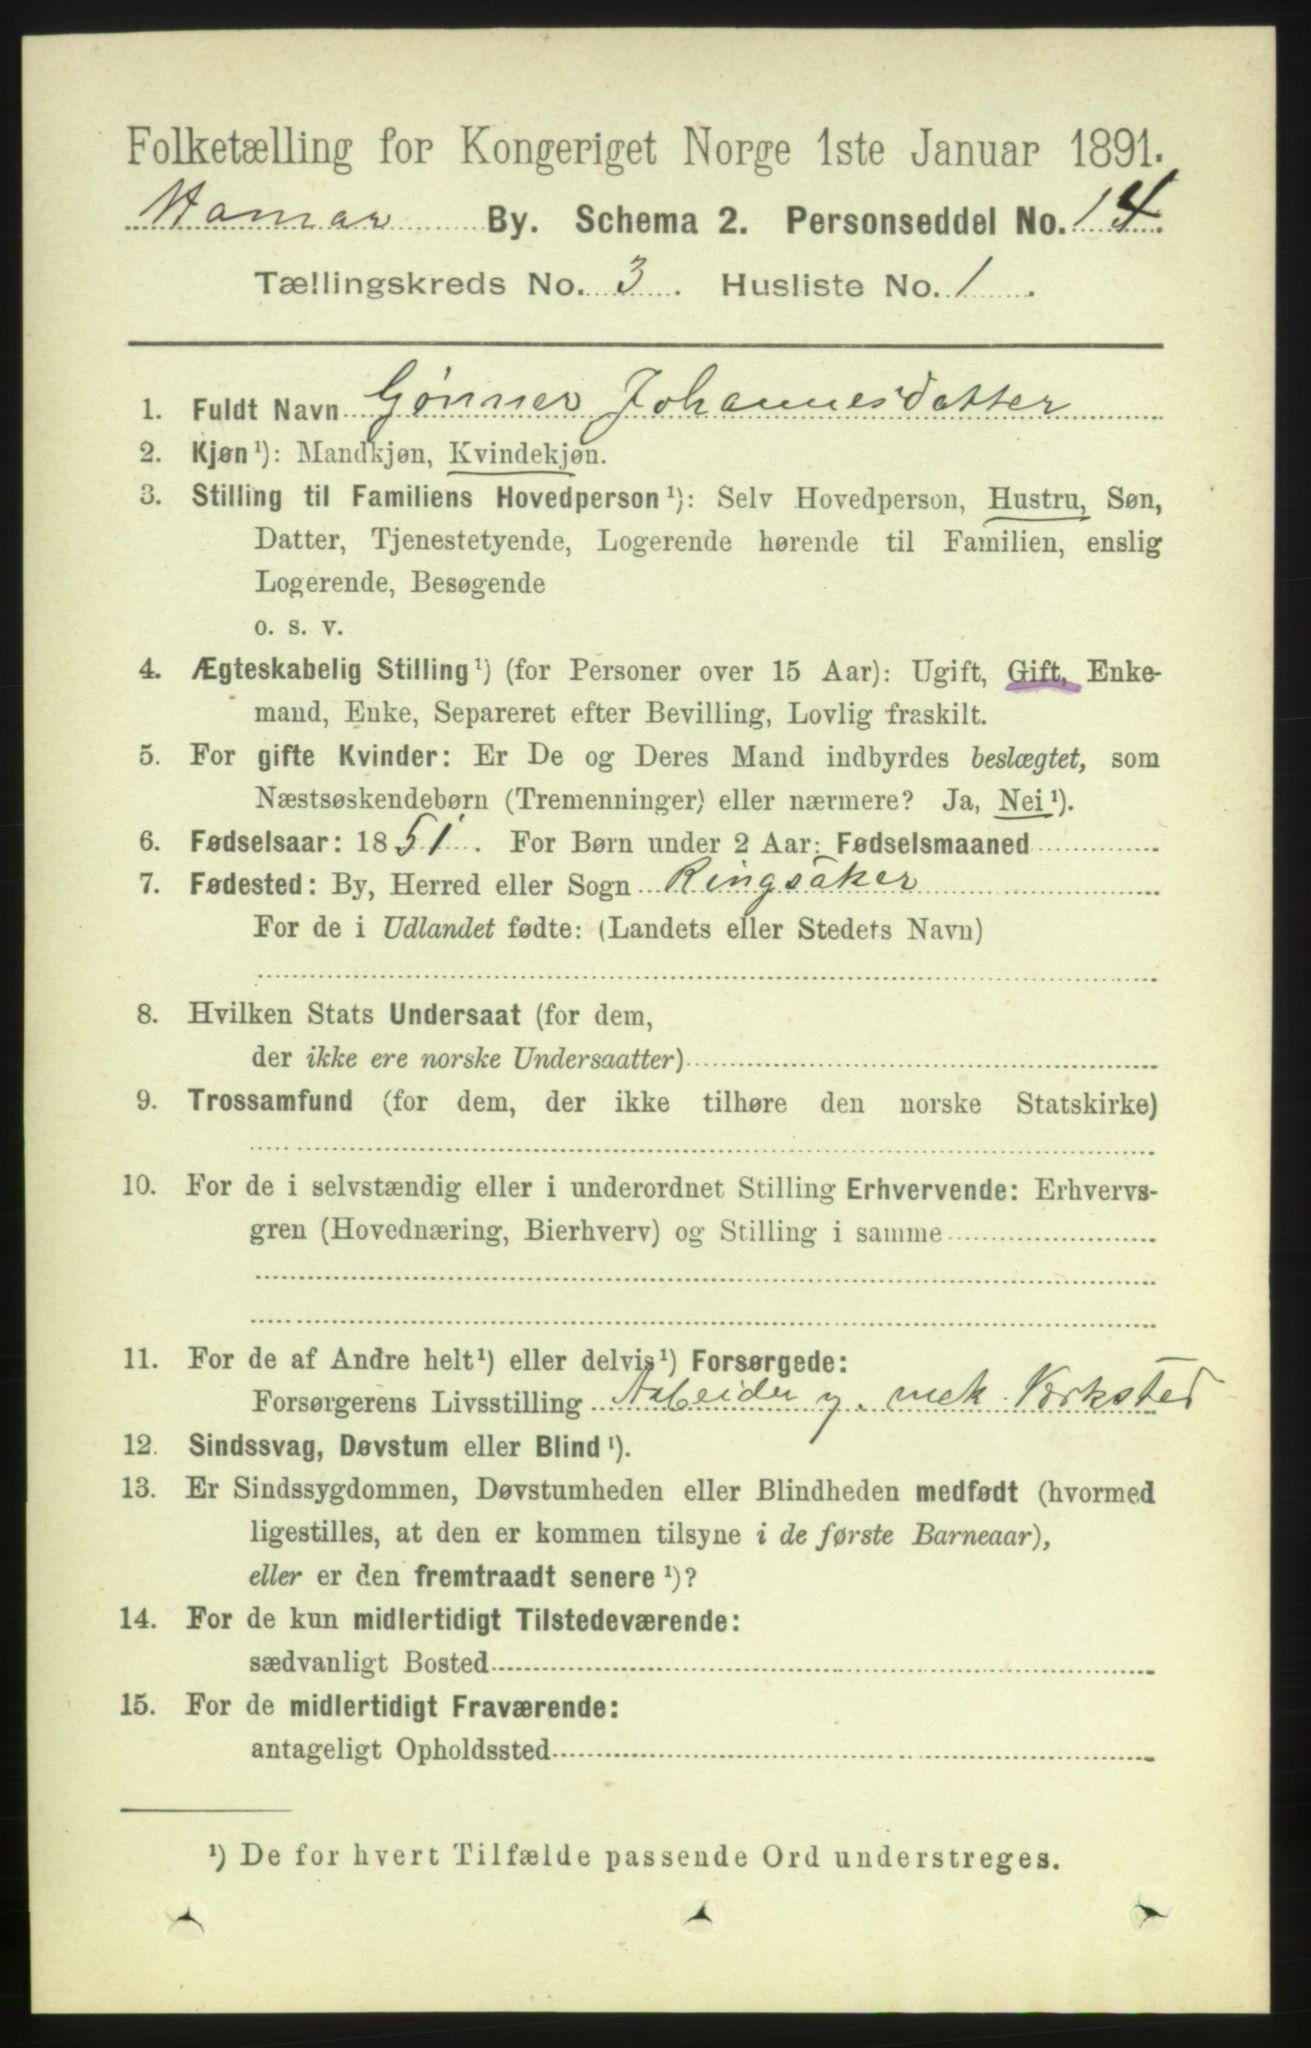 Folketælling for Kongeriget Norge 1ste Januar 1891.
Hamar By. Schema 2. Personseddel No. 14.
Tællingskreds No. 3. Husliste No. 1.
1. Fuldt Navn Gønner Johannesdatter
2. Kjøn¹): Mandkjøn, Kvindekjøn.
3. Stilling til Familiens Hovedperson¹): Selv Hovedperson, Hustru, Søn,
Datter, Tjenestetyende, Logerende hørende til Familien, enslig
Logerende, Besøgende
o. s. v.
4. Ægteskabelig Stilling¹) (for Personer over 15 Aar): Ugift, Gift, Enke-
mand, Enke, Separeret efter Bevilling, Lovlig fraskilt.
5. For gifte Kvinder: Er De og Deres Mand indbyrdes beslægtet, som
Næstsøskendebørn (Tremenninger) eller nærmere? Ja, Nei¹).
6. Fødselsaar: 1851. For Børn under 2 Aar: Fødselsmaaned
7. Fødested: By, Herred eller Sogn Ringsaker
For de i Udlandet fødte: (Landets eller Stedets Navn)
8. Hvilken Stats Undersaat (for dem,
der ikke ere norske Undersaatter)
9. Trossamfund (for dem, der ikke tilhøre den norske Statskirke)
10. For de i selvstændig eller i underordnet Stilling Erhvervende: Erhvervs-
gren (Hovednæring, Bierhverv) og Stilling i samme
11. For de af Andre helt¹) eller delvis¹) Forsørgede:
Forsørgerens Livsstilling Arbeider mek. Værksted
12. Sindssvag, Døvstum eller Blind¹).
13. Er Sindssygdommen, Døvstumheden eller Blindheden medfødt (hvormed
ligestilles, at den er kommen tilsyne i de første Barneaar),
eller er den fremtraadt senere¹)?
14. For de kun midlertidigt Tilstedeværende:
sædvanligt Bosted
15. For de midlertidigt Fraværende:
antageligt Opholdssted
¹) De for hvert Tilfælde passende Ord understreges.